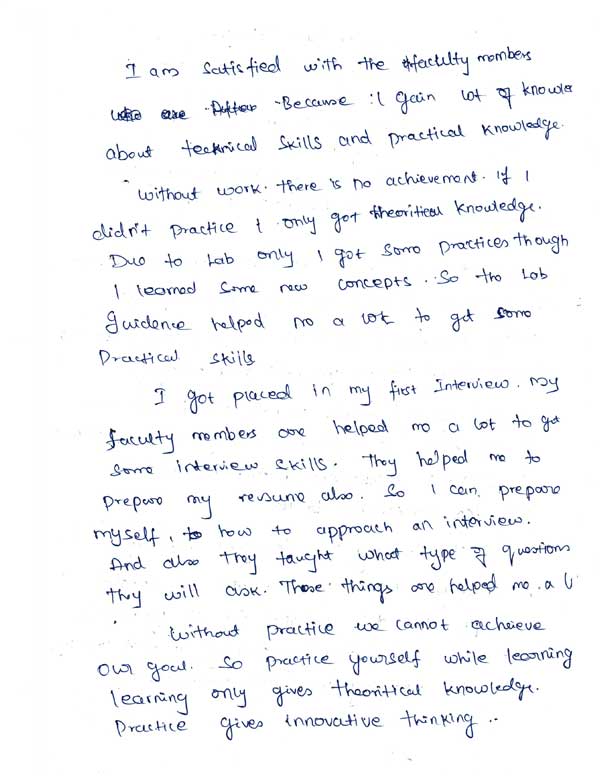 I am satisfied with the faculty members
Because I gain lot of knowle
about technical skills and practical knowledge.
Without work there is no achievement. If I
didn't practice I only got theoritical knowledge.
Due to Lab only I got some practices though
I learned some new concepts. So the Lab
Guidence helped me a lot to get some
Practical skills
I got placed in my first Interview. My
faculty members are helped me a lot to get
some interview skills. They helped me to
prepare my resume also. So I can prepare
myself, to how to approach an interview.
And also they taught what type of questions
they will ask. These things are helped me a l
Without practice we cannot acheieve
our goal. So practice yourself while learning
learning only gives theoritical knowledge.
Practice gives innovative thinking ..